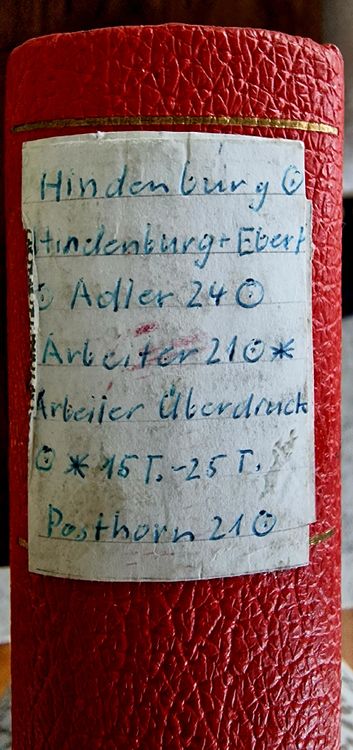 Hindenburg ⊙
Hindenburg + Ebert
⊙ Adler 24 ⊙
Arbeiter 21 ⊙ *
Arbeiter Überdruck
⊙ * 15 T. - 25 T.
Posthorn 21 ⊙